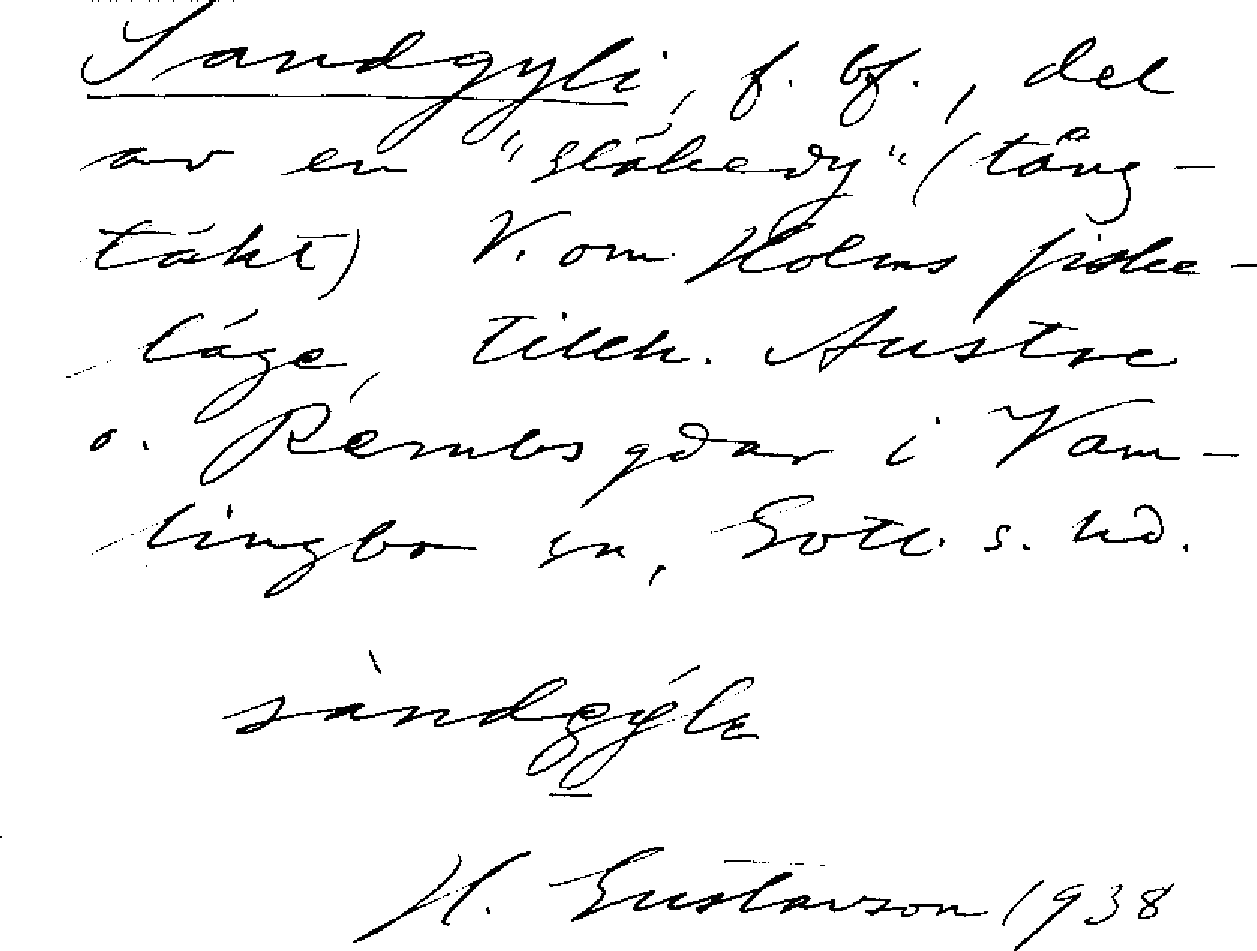 Sandgyli, f. bf., del
av en "släkedy" (tång-
täkt) V. om Holms fiske-
läge, tillh. Austre
o. Rembs gdar i Vam-
lingbo sn, Gotl. s. hd.
sàndgýlɛ
H. Gustavson 1938